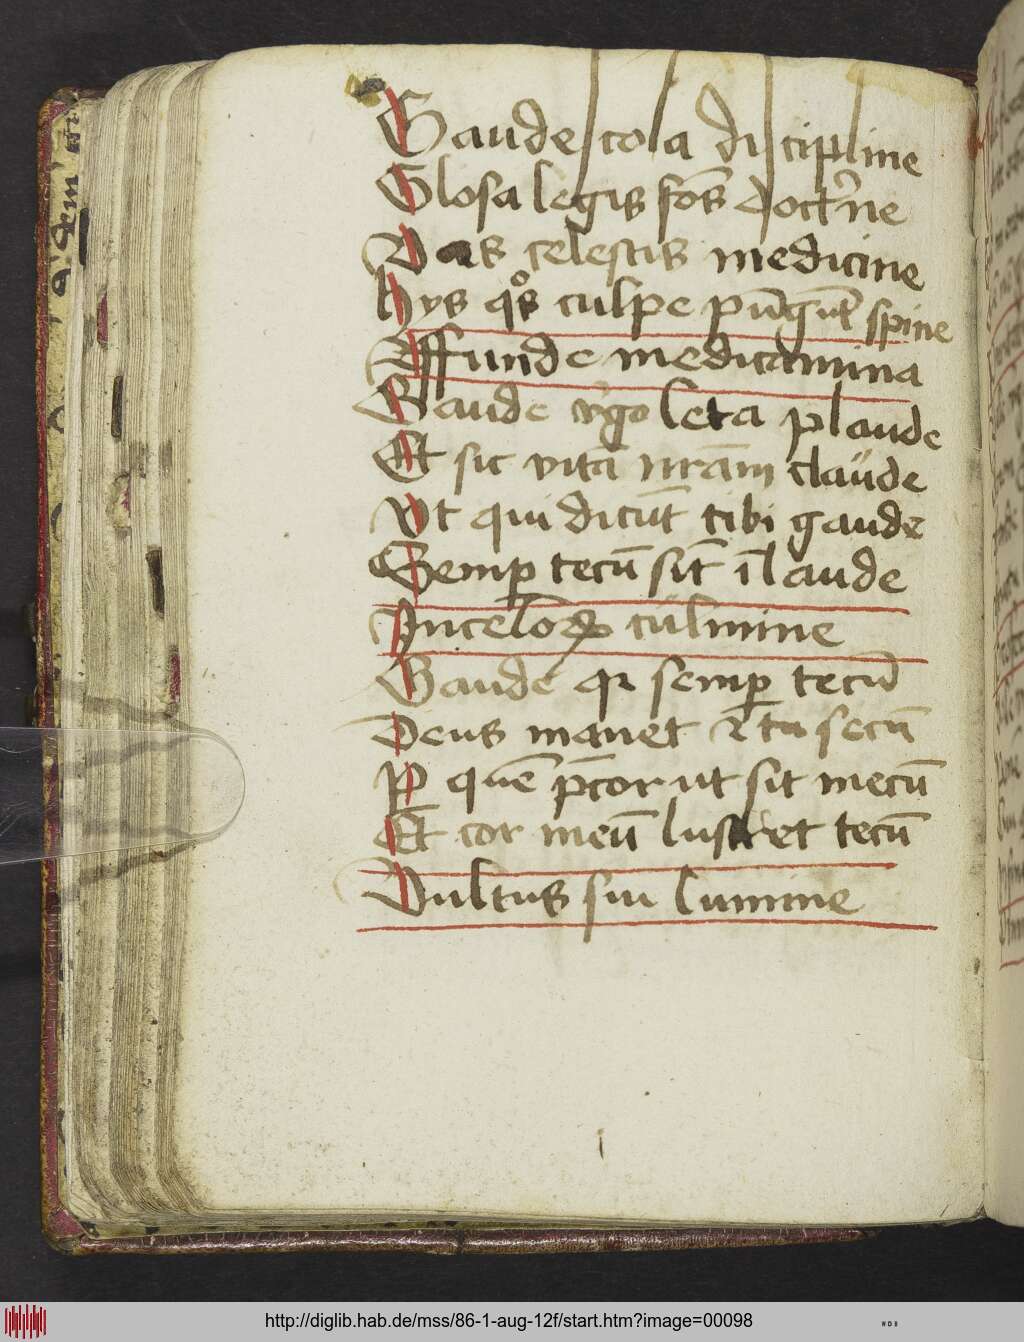 Gaude scola discipline
Glosa legis fōs doctʳine
Vas celestis medicine
hys qͦs culpe pūgūt spine
Effunde medicamina
Gaude vͥgo leta plaude
Et sic vitā nr̄am claude
Vt qui dicūt tibi gaude
Semꝑ tecū sīt ī laude
In celoꝝ culmine
Gaude qꝛ semꝑ tecū
Deus manet ⁊ tu secū
Ꝑ quē p̄cor ut sit mecū
Et cor meū lustret tecū
Vultus sui lumine
http://diglib.hab.de/mss/86-1-aug-12f/start.htm?image=00098